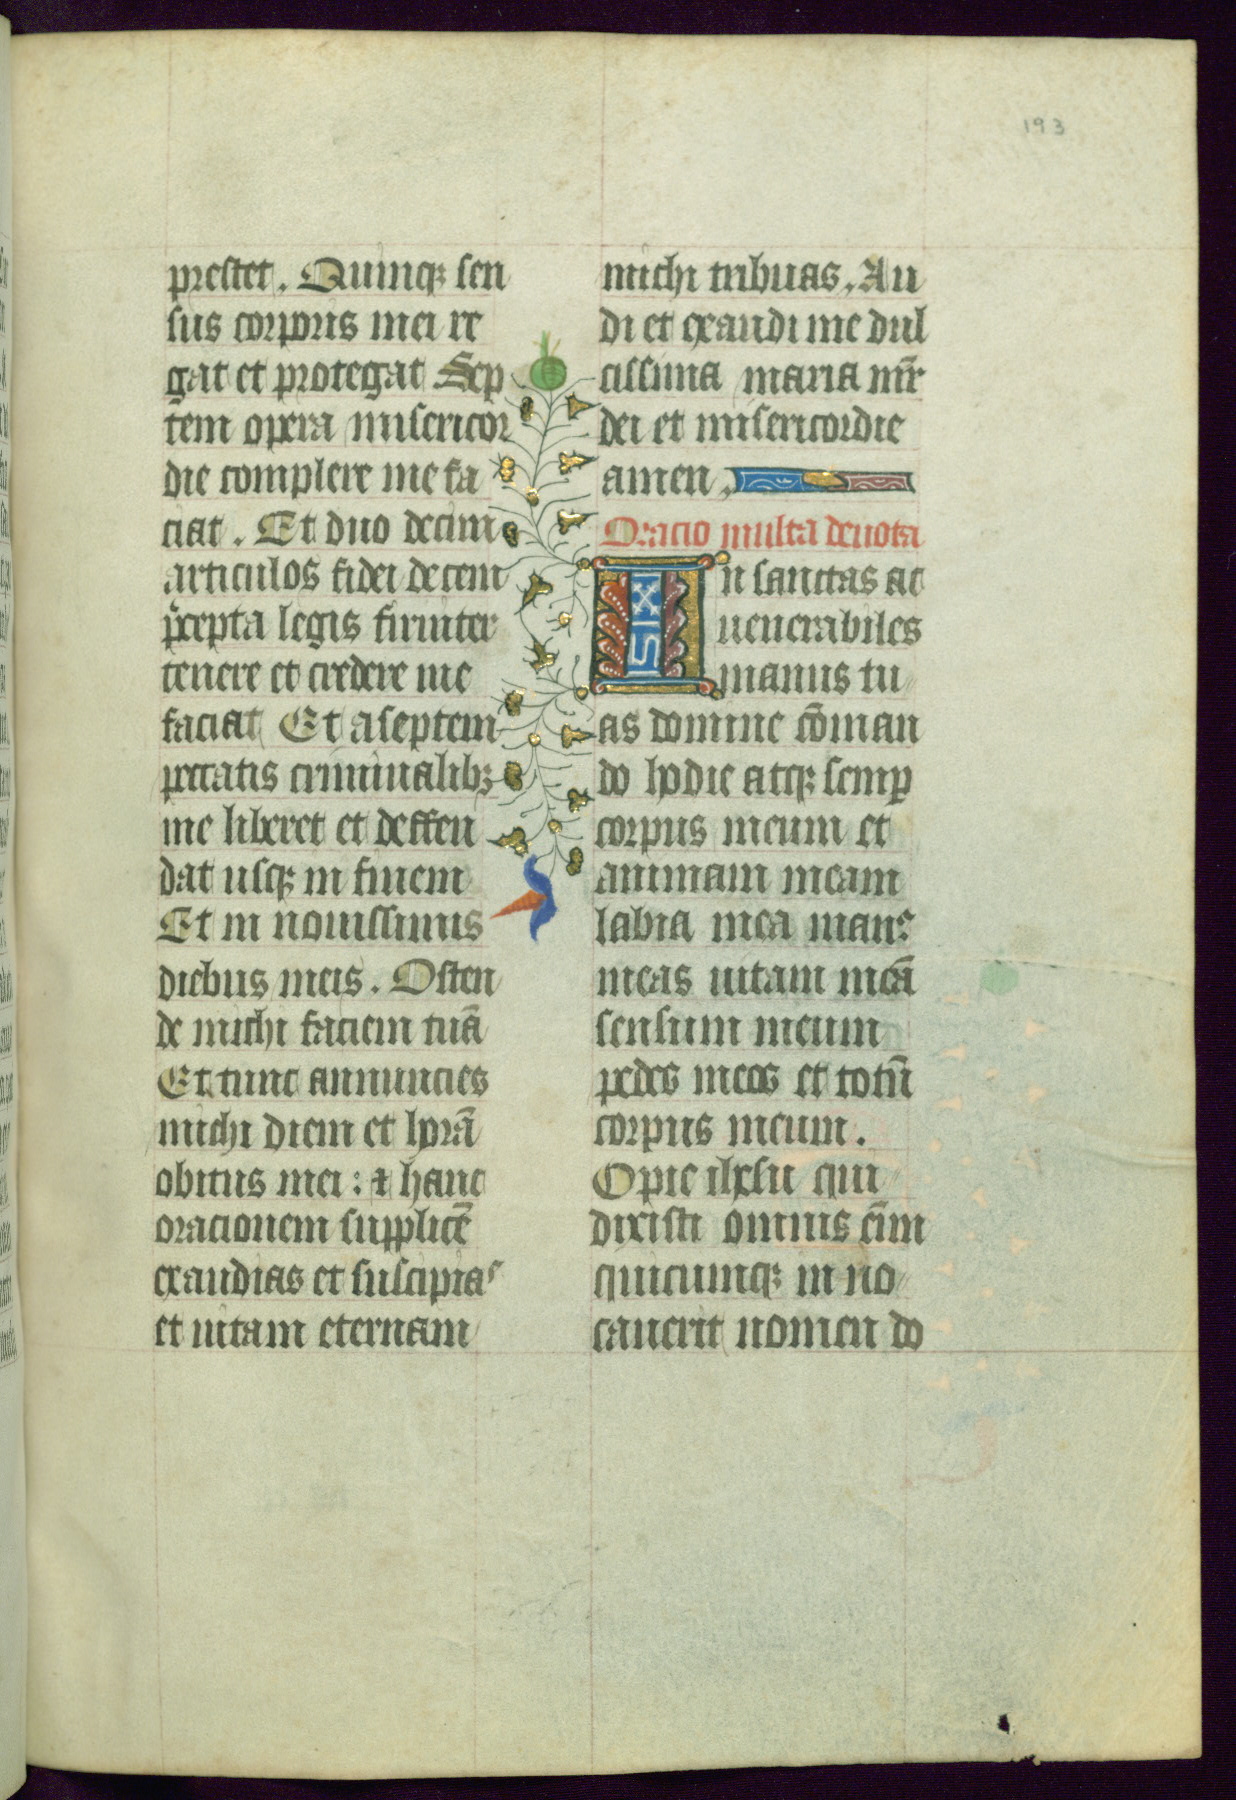 193
prestet. Quinq; sen
sus corporis mei re
gat et protegat Sep
tem opera misericor
die complere me fa
ciat. Et duo decim
articulos fidei decem
p̄cepta legis firmiter
tenere et credere me
faciat Et a septem
peccatis criminalib;
me liberet et deffen
dat usq; in finem
Et in nouissimis
diebus meis. Osten
de michi faciem tuā
Et tunc annuncies
michi diem et horā
obitus mei: ⁊ hanc
oracionem supplicē
exaudias et suscipias
et uitam eternam
michi tribuas. Au
di et exaudi me dul
cissima maria mr̄
dei et misericordie
amen.
Oracio multa deuota
In sanctas ac
uenerabiles
manus tu
as domine cōman
do hodie atq; semp̱
corpus meum et
animam meam
labia mea manꝰ
meas uitam meā
sensum meum
pedes meos et totū
corpus meum.
O pie ihesu qui
dixisti omnis eīm
quicumq; in uo
cauerit nomen do